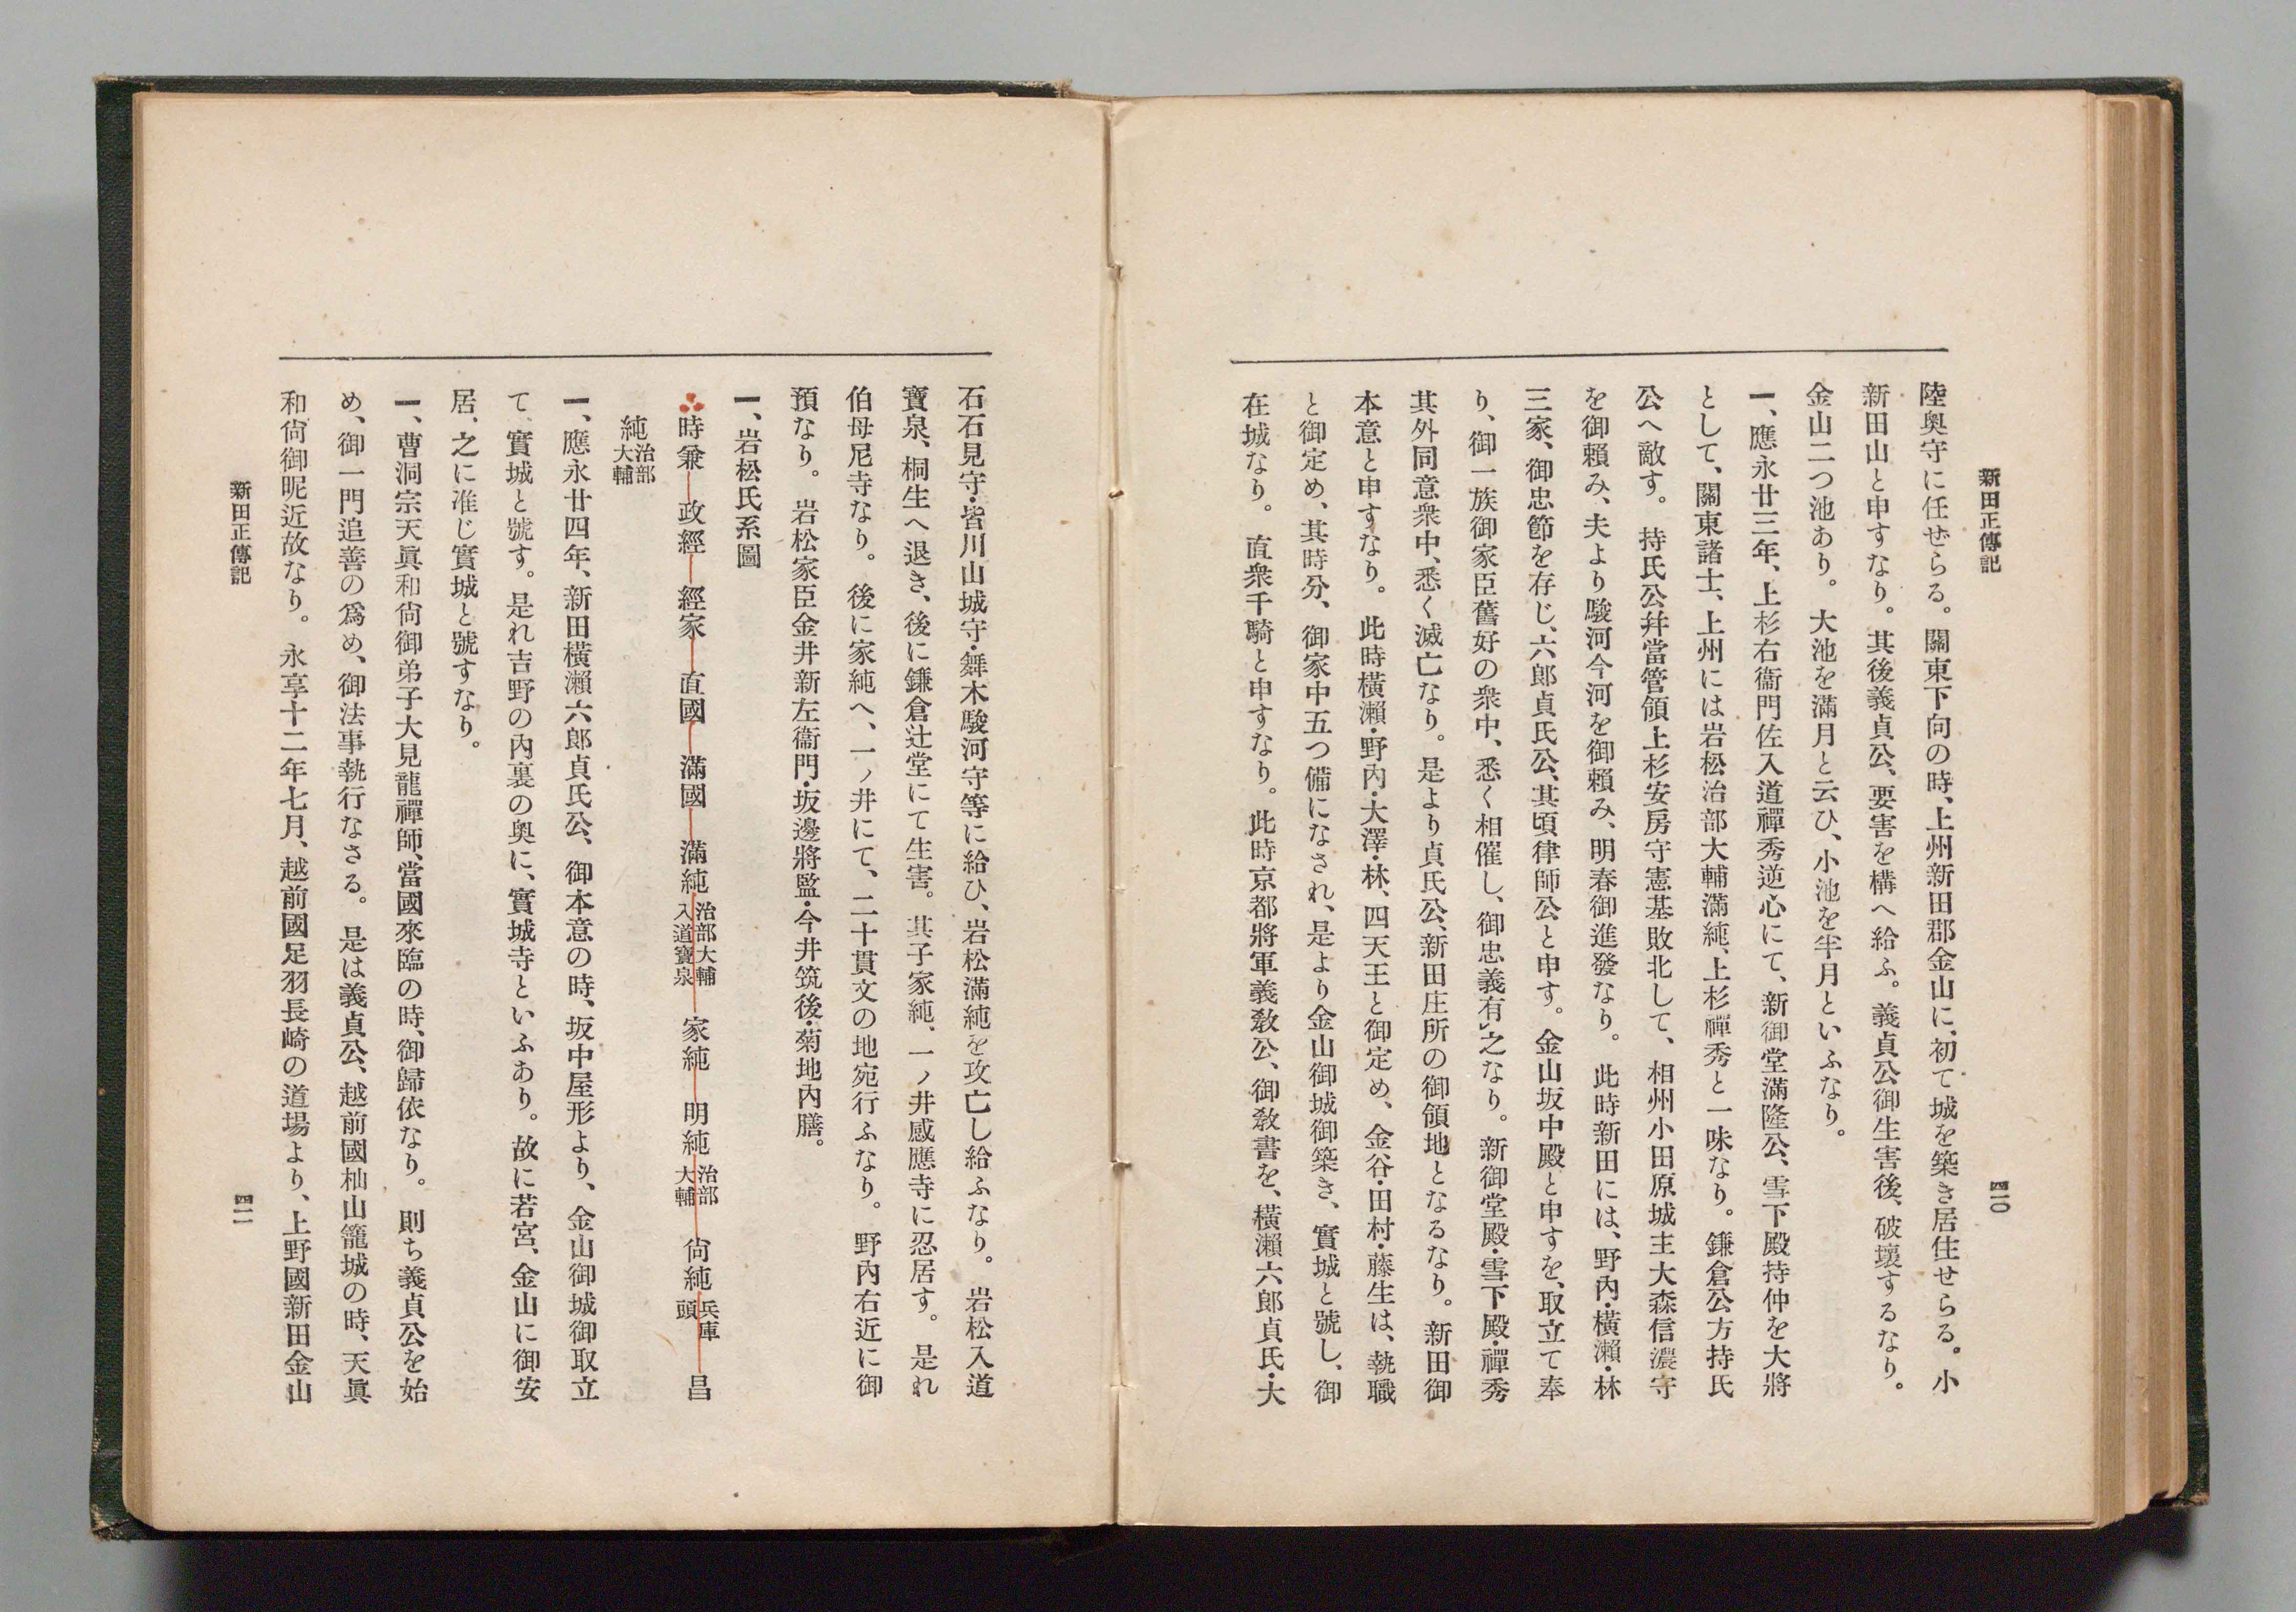 新田正傳記
四〇
陸奥守に任ぜらる。關東下向の時、上州新田郡金山に、初て城を築き居住せらる。小
新田山と申すなり。其後義貞公、要害を構へ給ふ。義貞公御生害後、破壞するなり。
金山二つ池あり。大池を滿月と云ひ、小池を半月といふなり。
一、應永廿三年、上杉右衞門佐入道禪秀逆心にて、新御堂滿隆公、雪下殿持仲を大將
として、關東諸士、上州には岩松治部大輔滿純、上杉禪秀と一味なり。鎌倉公方持氏
公へ敵す。持氏公幷當管領上杉安房守憲基敗北して、相州小田原城主大森信濃守
を御賴み、夫より駿河今河を御賴み、明春御進發なり。此時新田には、野內・橫瀨・林
三家、御忠節を存じ、六郎貞氏公、其頃律師公と申す。金山坂中殿と申すを、取立て奉
り、御一族御家臣舊好の衆中、悉く相催し、御忠義有レ之なり。新御堂殿・雪下殿・禪秀
其外同意衆中、悉く滅亡なり。是より貞氏公、新田庄所の御領地となるなり。新田御
本意と申すなり。此時橫瀨・野內・大澤・林、四天王と御定め、金谷・田村・藤生は、執職
と御定め、其時分、御家中五つ備になされ、是より金山御城御築き、實城と號し、御
在城なり。直衆千騎と申すなり。此時京都將軍義敎公、御敎書を、橫瀨六郎貞氏・大
石石見守・皆川山城守・舞木駿河守等に給ひ、岩松滿純を攻亡し給ふなり。岩松入道
寶泉、桐生へ退き、後に鎌倉辻堂にて生害。其子家純、一ノ井感應寺に忍居す。是れ
伯母尼寺なり。後に家純へ、一ノ井にて、二十貫文の地宛行ふなり。野內右近に御
預なり。岩松家臣金井新左衞門・坂邊將監・今井筑後・菊地內膳。
一、岩松氏系圖
時兼―政經―經家―直國―滿國―滿純 治部大輔 入道寶泉―家純―明純 治部 大輔―尙純 兵庫 頭―昌
純 治部 大輔
一、應永廿四年、新田橫瀨六郎貞氏公、御本意の時、坂中屋形より、金山御城御取立
て、實城と號す。是れ吉野の內裏の奧に、實城寺といふあり。故に若宮、金山に御安
居、之に准じ實城と號すなり。
一、曹洞宗天眞和尙御弟子大見龍禪師、當國來臨の時、御歸依なり。則ち義貞公を始
め、御一門追善の爲め、御法事執行なさる。是は義貞公、越前國杣山籠城の時、天眞
和尙御昵近故なり。永享十二年七月、越前國足羽長崎の道場より、上野國新田金山
新田正傳記
四一